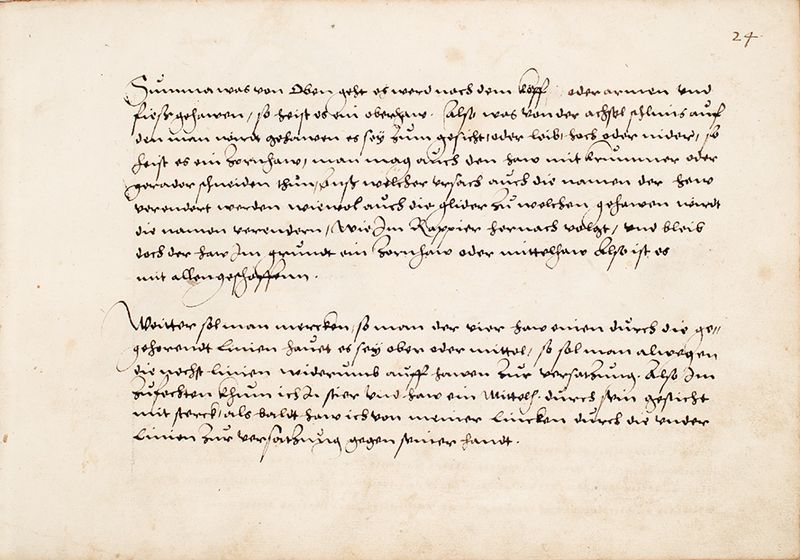 24
Summa was von Oben geht es werd nach dem kopff oder armen vnd
fiesse gehawen, so heist es ein oberhaw. Also was von der achsel schlims auff
den man wirdt gehawen es sey zum gesicht, oder leib, hoch oder nider, so
heist es ein Zornhaw, man mag auch den haw mit krummer oder
gerader schneiden thun, auss welcher vrsach auch die namen der haw
verendert werden wiewol auch die glider zu welchen gehawen wirdt
die namen verendern, Wie Im Rappier hernach volgt, vnd bleib
doch der haw Im grundt ein Zornhaw oder mittelhaw Also ist es
mit allen geschaffenn.
Weitter sol man mercken, so man der vier haw einen durch die ge=
gehorendt Linien hauet es sey ober oder mittel, so sol man alwegen
die nechst linien widerumb auff hawen zur versatzung. Also Im
Zufechten khum ich In stier vnd haw ein Mittelh. durch sein gesicht
mit sterck, als baldt haw ich von meiner Lincken durch die vnder
Linien zur versatzung gegen seiner handt.